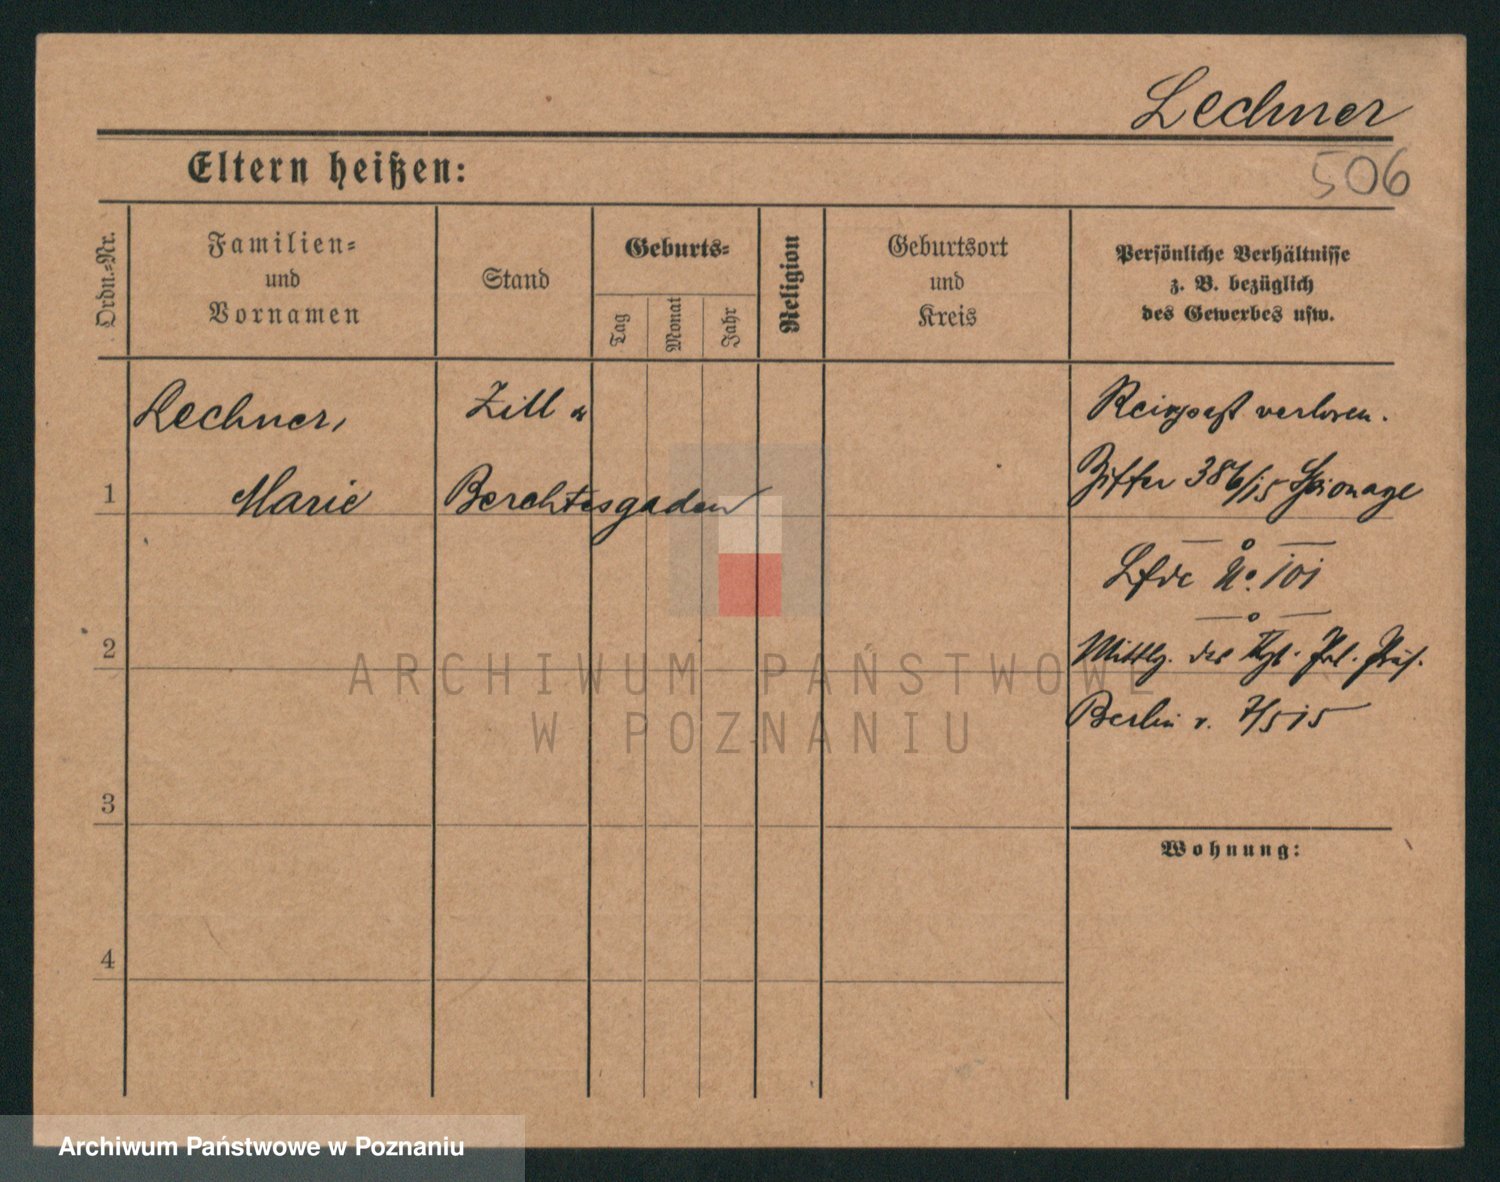 Lechner
506
Eltern heißen:
Ordn.-Nr.
Familien-
und
Vornamen
Stand
Geburts-
Tag
Monat
Jahr
Religion
Geburtsort
und
Kreis
Persönliche Verhältnisse
z. B. bezüglich
des Gewerbes usw.
Lechner,
Marie
Zill
Berchtesgaden
Reisepaß verloren.
Ziffer 386/15 Spionage
Lfde No. 101
Mittlg. des Kgl. Pol. Präs.
Berlin v. 7/5 15
1
2
3
4
Wohnung:
ARCHIWUM PAŃSTWOWE
W POZNANIU
Archiwum Państwowe w Poznaniu